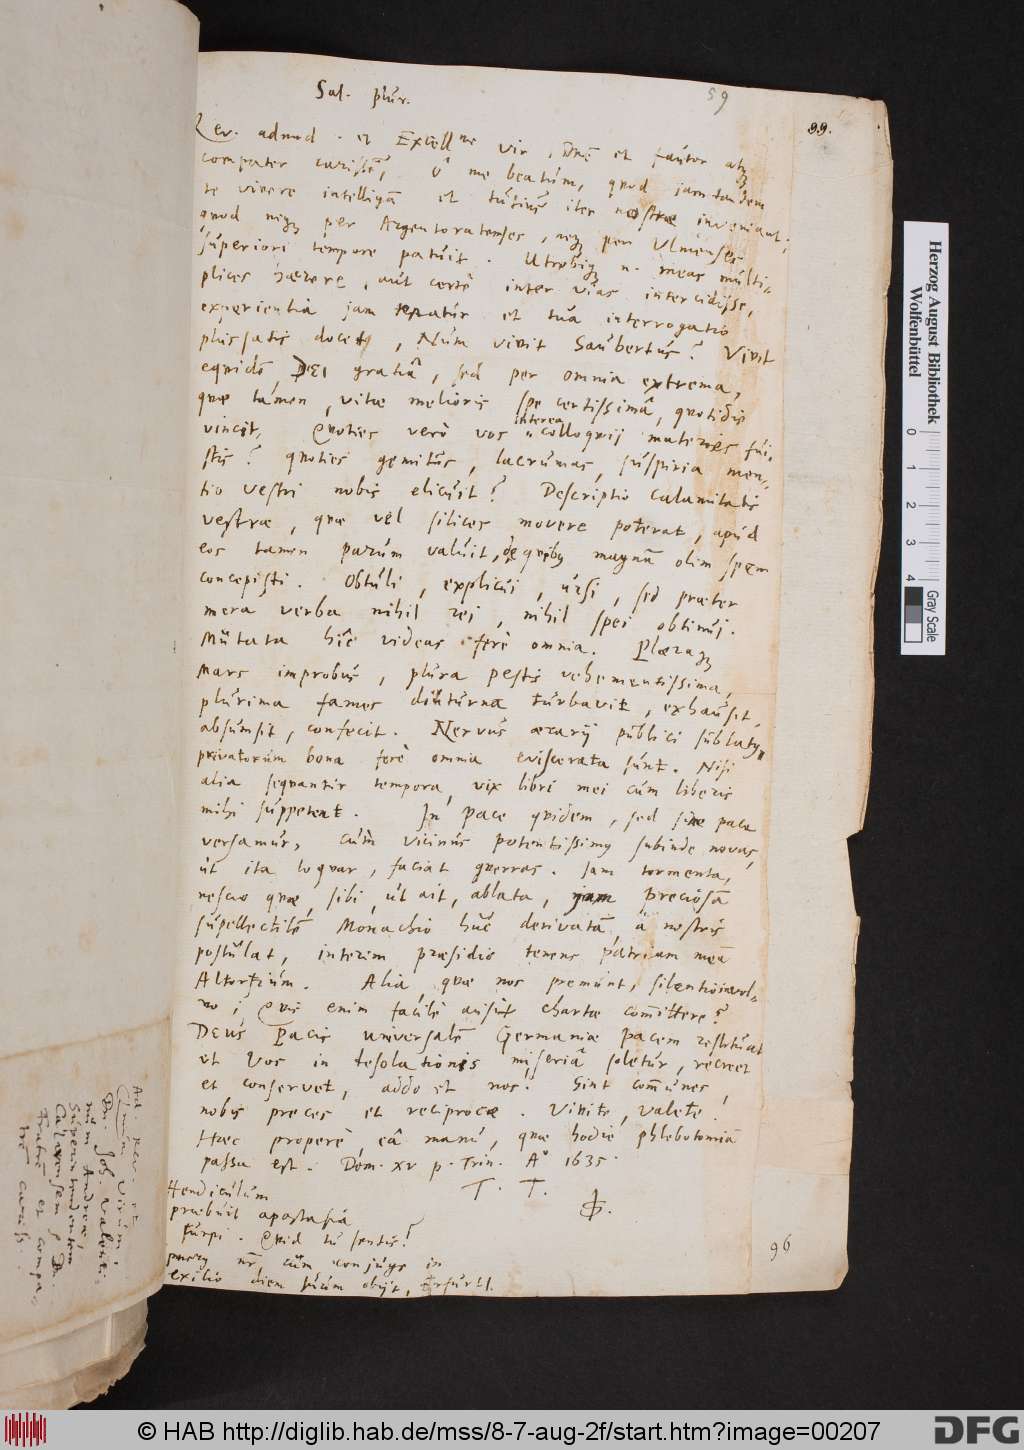 Sal. plur.
59
99.
Rev. admod. et Excellme vir, Dne et fautor atq3
compater cariss., O me beatum, quod jam tandem
te vivere intelligā et tutius iter nostrae inveniant;
quod neq3 per Argentoratenses, neq3 per Ulmenses
superiori tempore patuit. Utrobiq3 n. meas multi=
plices haerere, aut certè inter vias intercidisse,
experientia jam et tua interrogatio
plus satis docet, Num vivit Saubertus? Vivit
equidē, DEI gratiâ, sed per omnia extrema,
quae tamen, vitae melioris spe certissimâ, quotidie
vincit. Quoties verò vos interea colloquij materies fui=
stis? quoties gemitus, lacrumas, suspiria men=
tio vestri nobis elicuit? Descriptio calamitatis
vestrae, quae vel silices movere poterat, apud
eos tamen parum valuit, de quibq magnā olim spem
concepisti. Obtuli, explicui, ursi, sed praeter
mera verba nihil rei, nihil spei obtinui.
Mutata hîc videas ferè omnia. Pleraq3
Mars improbus, plura pestis vehementissima,
plurima fames diuturna turbavit, exhausit,
absumsit, confecit. Nervus aerarij publici sublatq,
privatorum bona ferè omnia eviscerata sunt. Nisi
alia sequantur tempora, vix libri mei cum liberis
mihi suppetent. In pace quidem, sed sine pace
versamur, cùm vicinus potentissimq subinde novas,
ut ita loquar, faciat guerras. Jam tormenta,
nescio quae, sibi, ut ait, ablata, jam preciosā
supellectilē Monachio huc derivatā, à nostris
postulat, interim praesidio tenens patriam meā
Altorfium. Alia quae nos premunt, silentio invol=
vo; Quis enim facilè ausit chartae com̄ittere?
DEUS Pacis universalē Germaniae pacem restituat
ut Vos in desolationis miseriâ soletur, recreet
et conservet, addo et nos. Sint com̄unes,
nobis preces et reciprocae. Vivite, Valete!
Haec properè eâ manu, quae hodie phlebotomiā
passa est. Dom. XV p. Trin. A° 1635.
T. T.
Hendiculum
praebuit apostasia
turpi. Quid tu sentis?
nr. cum conjuge in
exilio diem suum obijt, Erfurti.
96
Ad. Rev. et
Virum,
Dn. Joh. Valenti
num Andreae,
Superintendentem
Calvensem S. D.
Fratrē et compa=
trē cariss.
Herzog August Bibliothek
Wolfenbüttel
0 1 2 3 4
Gray Scale
© HAB http://diglib.hab.de/mss/8-7-aug-2f/start.htm?image=00207
DFG